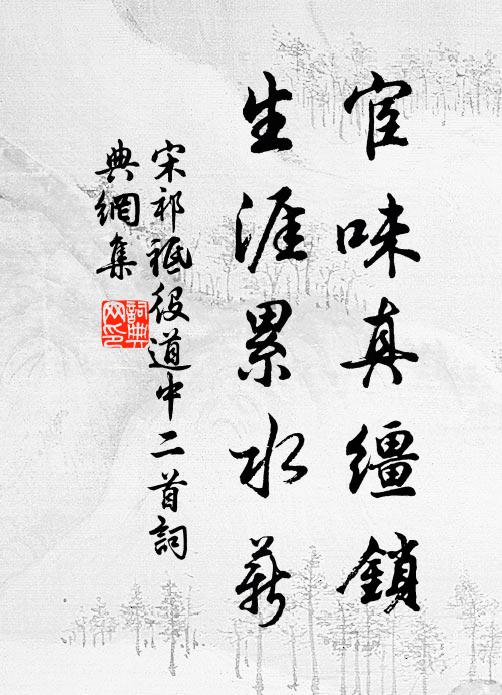 宦味真繮鎖
生涯累水薪
宋祁祗役道中二首詞
典網集
詞典
网印